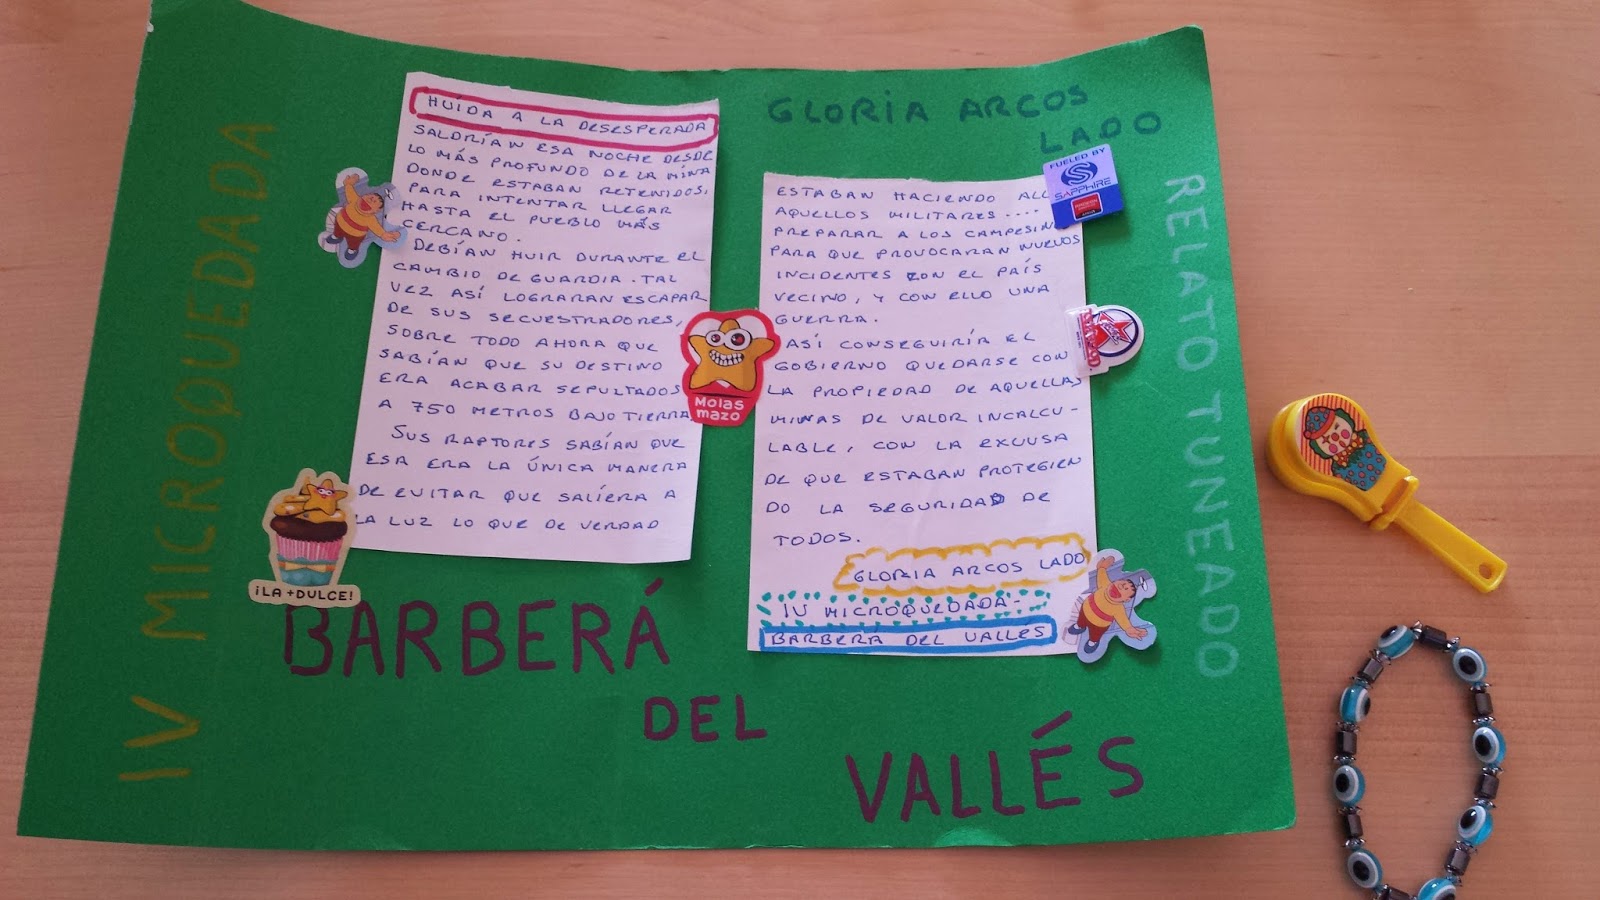 IV MICROQUEDADA
HUÍDA A LA DESESPERADA
SALDRÍAN ESA NOCHE DESDE
LO MÁS PROFUNDO DE LA MINA
DONDE ESTABAN RETENIDOS,
PARA INTENTAR LLEGAR
HASTA EL PUEBLO MÁS
CERCANO.
DEBÍAN HUIR DURANTE EL
CAMBIO DE GUARDIA. TAL
VEZ ASÍ LOGRARAN ESCAPAR
DE SUS SECUESTRADORES,
SOBRE TODO AHORA QUE
SABÍAN QUE SU DESTINO
ERA ACABAR SEPULTADOS
A 750 METROS BAJO TIERRA
SUS RAPTORES SABÍAN QUE
ESA ERA LA ÚNICA MANERA
DE EVITAR QUE SALIERA A
LA LUZ LO QUE DE VERDAD
¡LA +DULCE!
Molas
mazo
GLORIA ARCOS
LADO
FUELED BY
SAPPHIRE
ESTABAN HACIENDO ALL
AQUELLOS MILITARES....
PREPARAR A LOS CAMPESIN
PARA QUE PROVOCARAN NUEVOS
INCIDENTES CON EL PAÍS
VECINO, Y CON ELLO UNA
GUERRA.
ASÍ CONSEGUIRÍA EL
GOBIERNO QUEDARSE CON
LA PROPIEDAD DE AQUELLAS
MINAS DE VALOR INCALCU-
LABLE, CON LA EXCUSA
DE QUE ESTABAN PROTEGIEN
DO LA SEGURIDAD DE
TODOS.
GLORIA ARCOS LADO
IV MICROQUEDADA-
BARBERA DEL VALLÉS
RELATO TUNEADO
BARBERÁ
DEL
VALLÉS